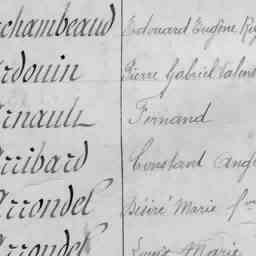 rchambeaud Edouard Eugène
rdouin Pierre Gabriel
rnault Fernand
rribard Constant
rrondel Désiré Marie
rrondel Louis Marie